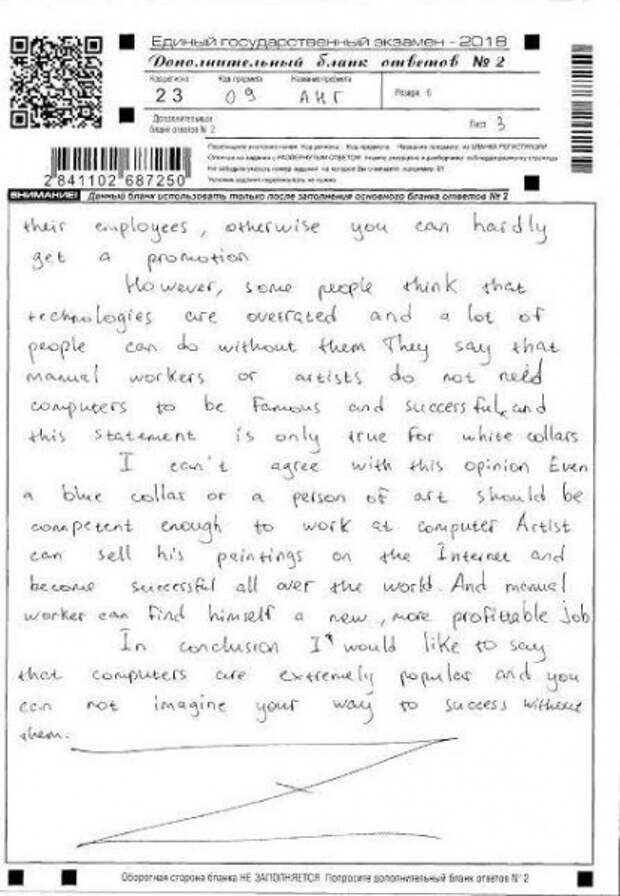 Единый государственный экзамен - 2018
Дополнительный бланк ответов № 2
Код региона Код предмета Название предмета
23 09 АНГ
Резерв - 6
Дополнительный
бланк ответов № 2
Лист 3
2841102 687250
ВНИМАНИЕ! Данный бланк использовать только после заполнения основного бланка ответов № 2
their employees, otherwise you can hardly
get a promotion
However, some people think that
technologies are overrated and a lot of
people can do without them They say that
manual workers or artists do not need
computers to be famous and successful, and
this statement is only true for white collars
I can't agree with this opinion Even
a blue collar or a person of art should be
competent enough to work at computer Artist
can sell his paintings on the Internet and
become successful all over the world. And manual
worker can find himself a new, more profittable job
In conclusion I would like to say
that computers are extremely popular and you
can not imagine your way to success without
them.
Оборотная сторона бланка НЕ ЗАПОЛНЯЕТСЯ. Попросите дополнительный бланк ответов № 2